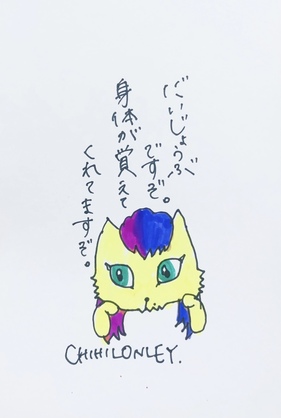 だいじょうぶ
ですぞ。
身体が覚えて
くれてますぞ。
CHIHILONLEY.